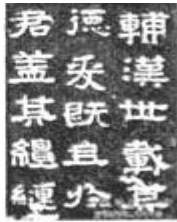 輔漢世載其
德爰既且於
君蓋其繵縺